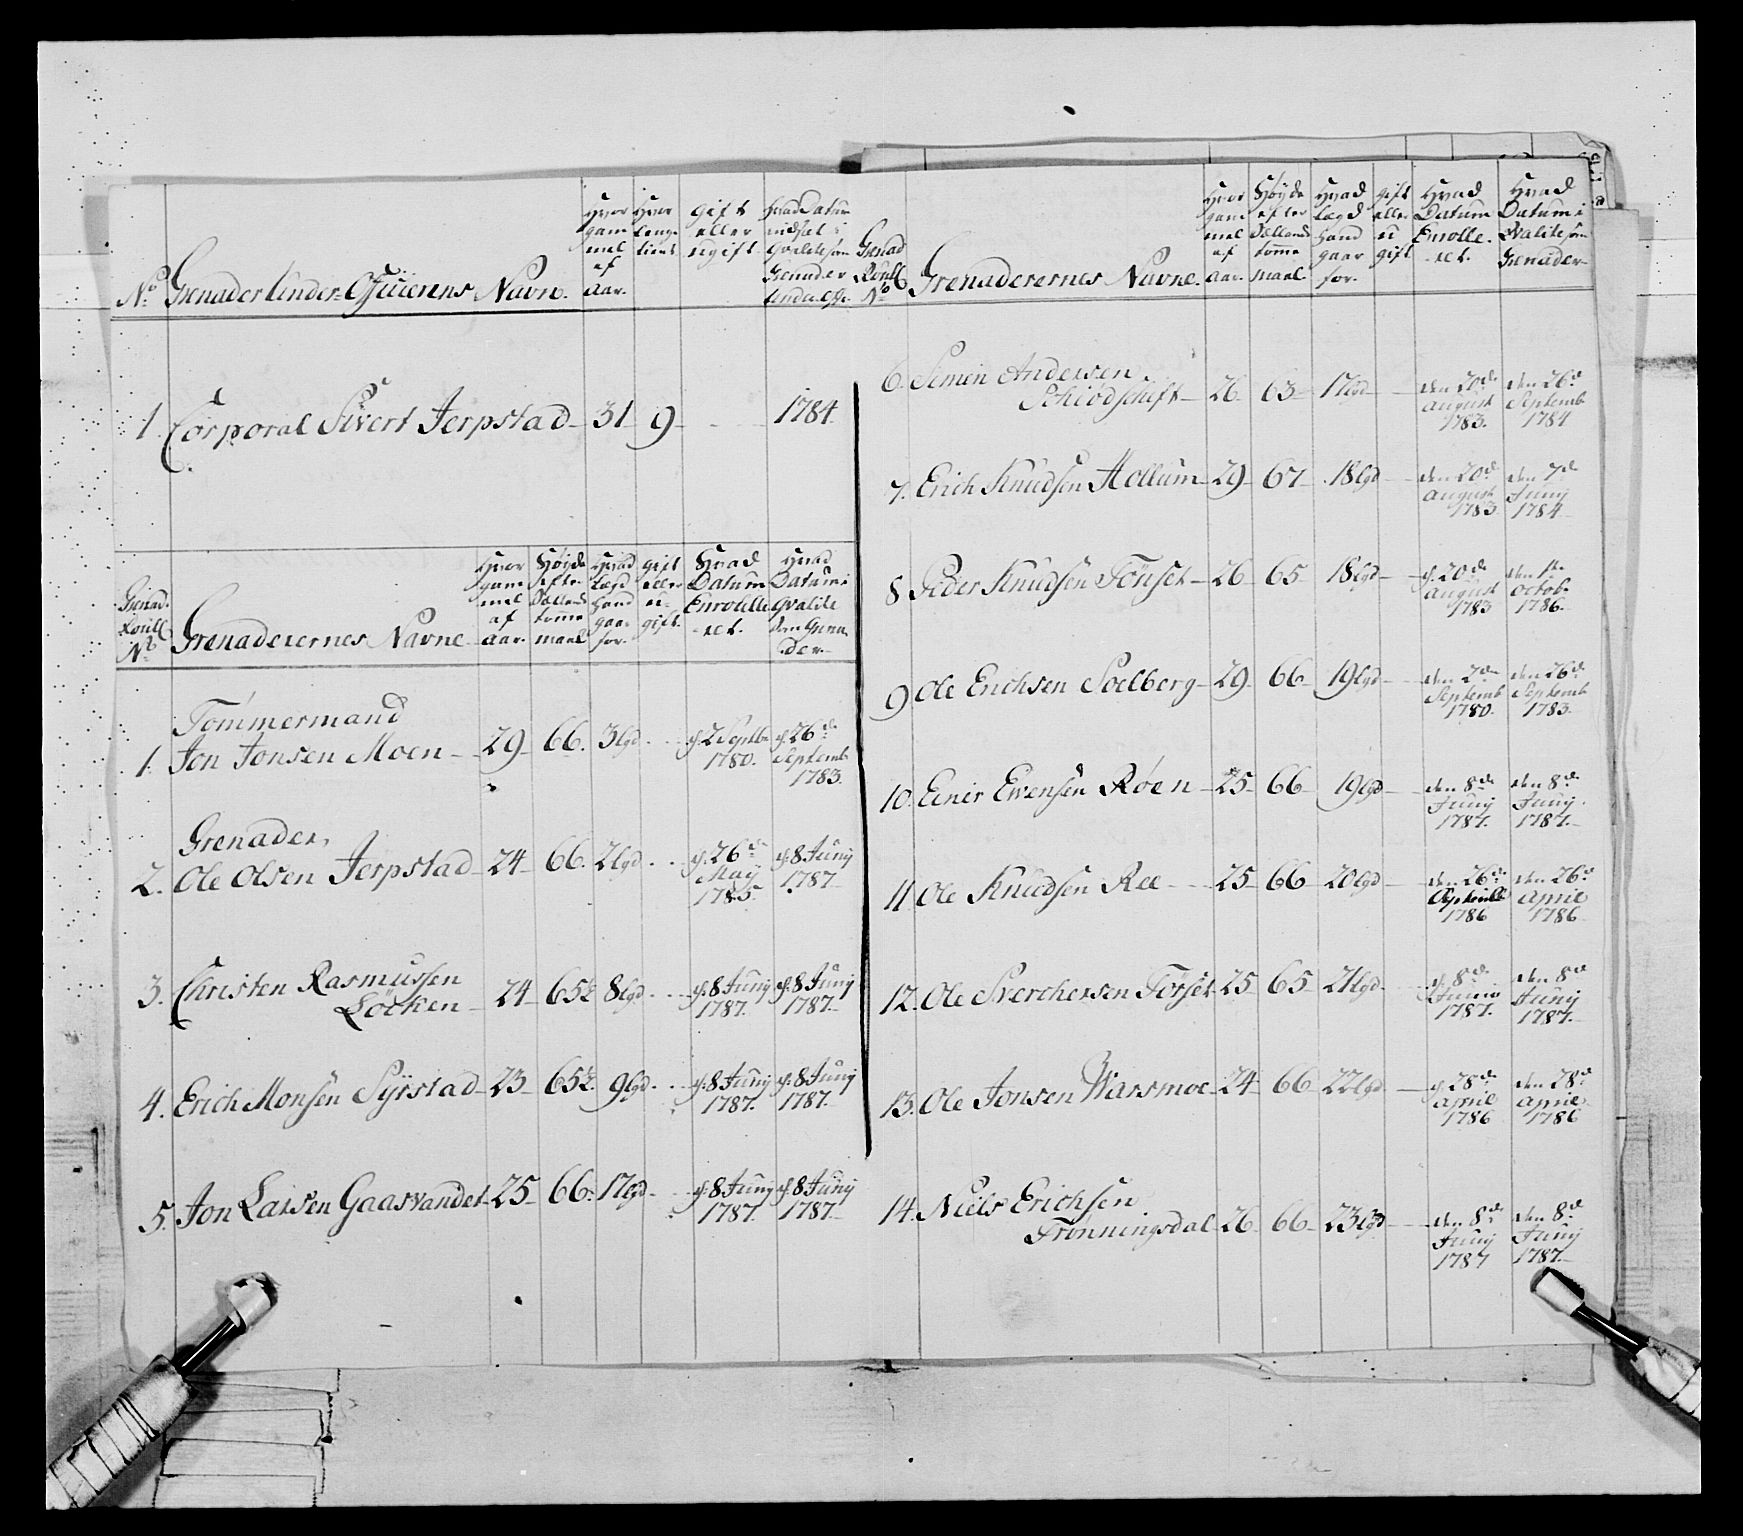 No Grenader Under Officierens Navn.
Hvor gammel af aar.
Hvor lenge tient
gift eller ugift
Hvad Datum indsat i Qvalite som Grenader Under Off.
1. Corporal Sivert Jerpstad 31 9 1784
Grenad. Roull No
Grenaderernes Navne
Hvor gammel af aar.
Høyde efter Sællands tomme maal
Hvad Lægd hand gaar for.
gift eller u-gift.
Hvad Datum Enroulleret.
Hvad Datum i Qvalite som Grenader.
Tömmermand
1. Jon Jonsen Moen 29 66. 3 lgd. d. 2 Septbr 1780. d. 26de Septemb 1783.
Grenader,
2. Ole Olsen Jerpstad 24 66. 2 lgd. d. 26de May 1785. d. 8 Junij 1787
3. Christen Rasmussen
Löcken 24 65½ 8 lgd. d. 8 Junij 1787. d. 8 Junij 1787.
4. Erich Monsen Syrstad 23 65½. 9 lgd. d. 8 Junij 1787. d. 8 Junij 1787.
5. Jon Larsen Gaasvandet 25 66. 17 lgd. d. 8 Junij 1787. d. 8 Junij 1787.
Grenad Roull No
Grenaderernes Navne.
Hvor gammel af aar.
Høyde efter Sællands tomme maal.
Hvad Lægd hand gaar for.
gift eller u gift
Hvad Datum Enrolleret.
Hvad Datum i Qvalite som Grenader
6. Simen Andersen
Schiødschift 26 63 17 lgd den 20de August 1783. den 26de Septemb 1784
7. Erich Knudsen Hollum 29 67 18 lgd den 20de August 1783 den 7de Junij 1784
8 Peder Knudsen Tönset 26 65 18 lgd d. 20de August 1783 den 1te Octobr 1786.
9 Ole Erichsen Solberg 29 66 19 lgd den 2den Septemb 1780. den 26de Septemb 1783.
10. Einer Evensen Röen 25 66 19 lgd den 8de Junij 1787. den 8de Junij. 1787.
11 Ole Knudsen Ree 25 66 20 lgd den 26de 1786 den 26de April 1786.
12. Ole Sverchersen Törset 25 65 21 lgd. d. 8de Junij 1787. den 8de Junij 1787.
13. Ole Jonsen Warsmoe 24 66 22 lgd d. 28de April 1786 den 28de April 1786
14. Niels Erichsen
Trönningsdal 26 66 23 lgd den 8de Junij 1787 den 8de Junij 1787.